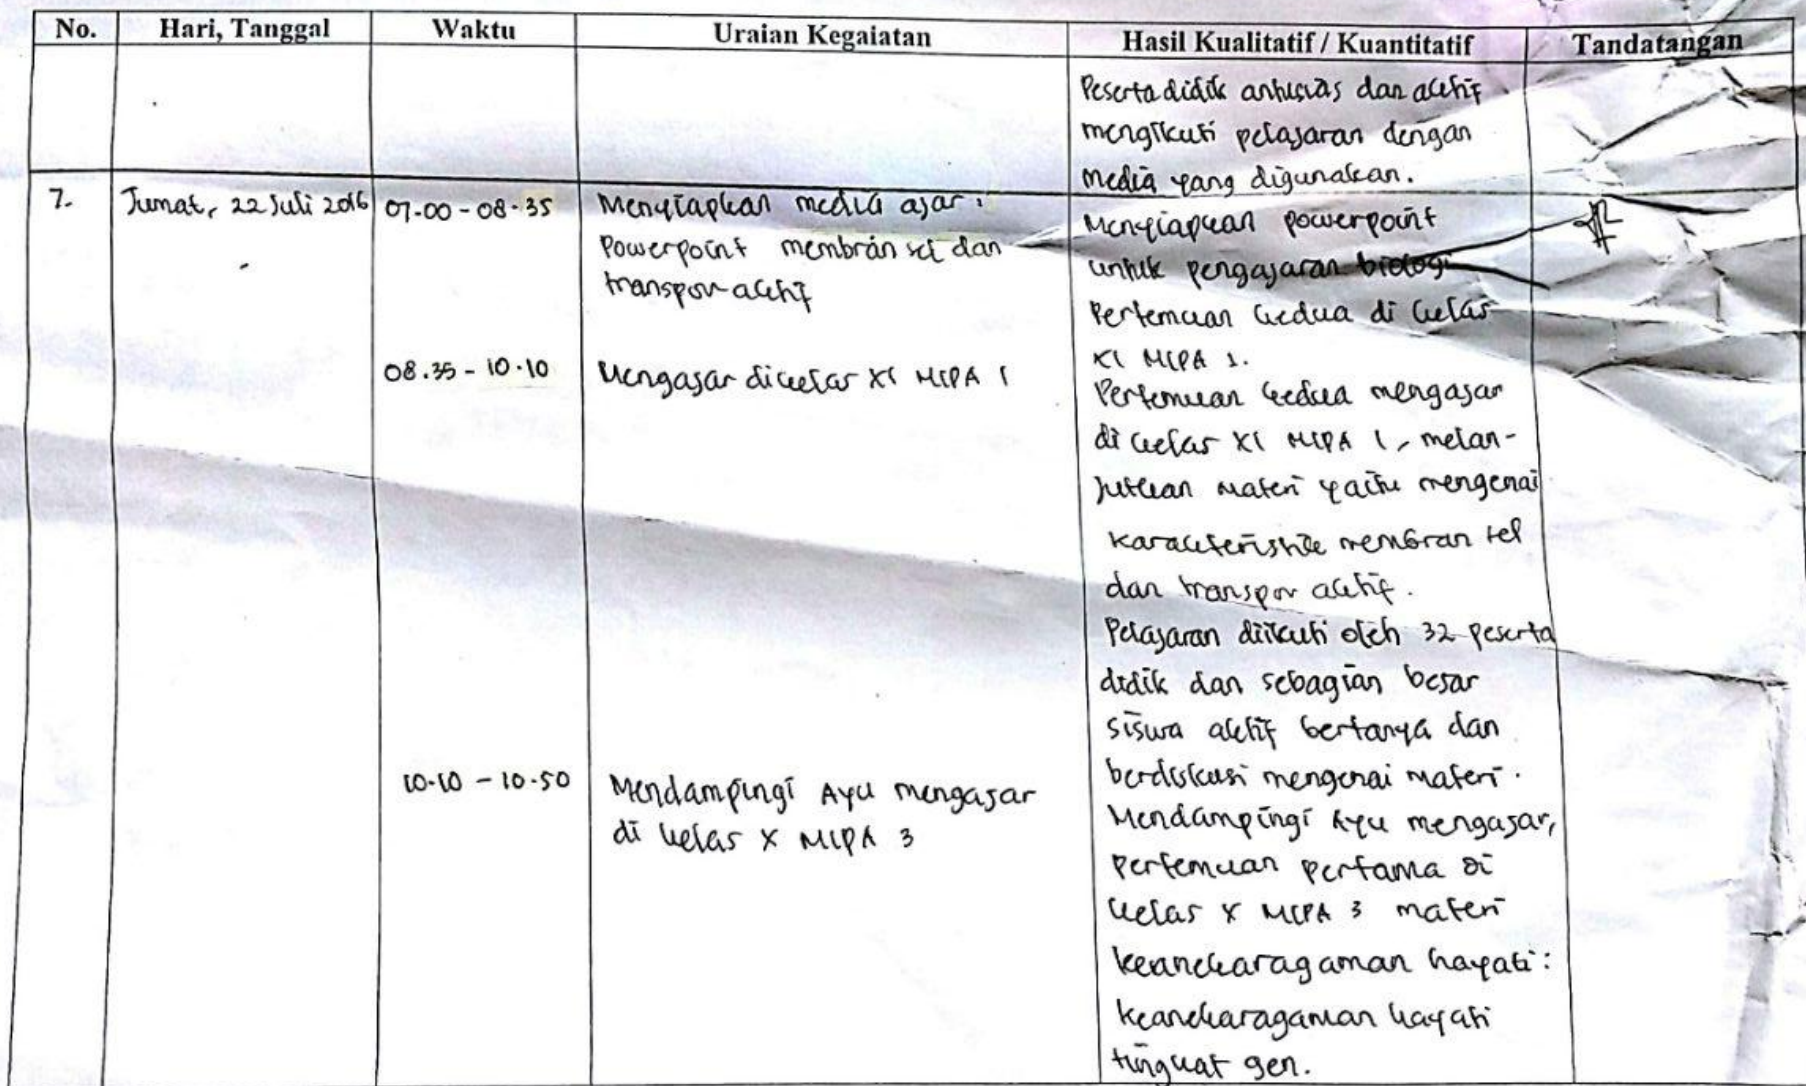 No. Hari, Tanggal Waktu Uraian Kegaiatan Hasil Kualitatif / Kuantitatif Tandatangan
Peserta didik antusias dan aktif
mengikuti pelajaran dengan
media yang digunakan.
7. Jumat, 22 Juli 2016 07.00 - 08.35 Menyiapkan media ajar :
Powerpoint membran sel dan
transpor aktif
Menyiapkan powerpoint
untuk pengajaran biologi
Pertemuan kedua di kelas
XI MIPA 1.
08.35 - 10.10 Mengajar di kelas XI MIPA 1
Pertemuan kedua mengajar
di kelas XI MIPA 1, melan-
jutkan materi yaitu mengenai
karakteristik membran sel
dan transpor aktif.
Pelajaran diikuti oleh 32 peserta
didik dan sebagian besar
siswa aktif bertanya dan
berdiskusi mengenai materi.
10.10 - 10.50 Mendampingi Ayu mengajar
di kelas X MIPA 3
Mendampingi Ayu mengajar,
pertemuan pertama di
kelas X MIPA 3 materi
keanekaragaman hayati :
keanekaragaman hayati
tingkat gen.